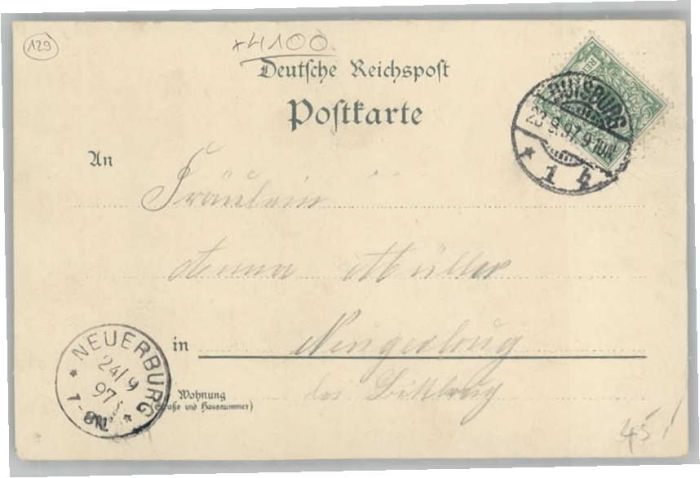 129
*4100.
Deutsche Reichspost
Postkarte
DUISBURG
23.9.97.9-10N.
* 1 h
An
Fräulein
Anna Müller
in
NEUERBURG
24/9
97
7-8N.
Wohnung
(Straße und Hausnummer)
bei Bitburg
45